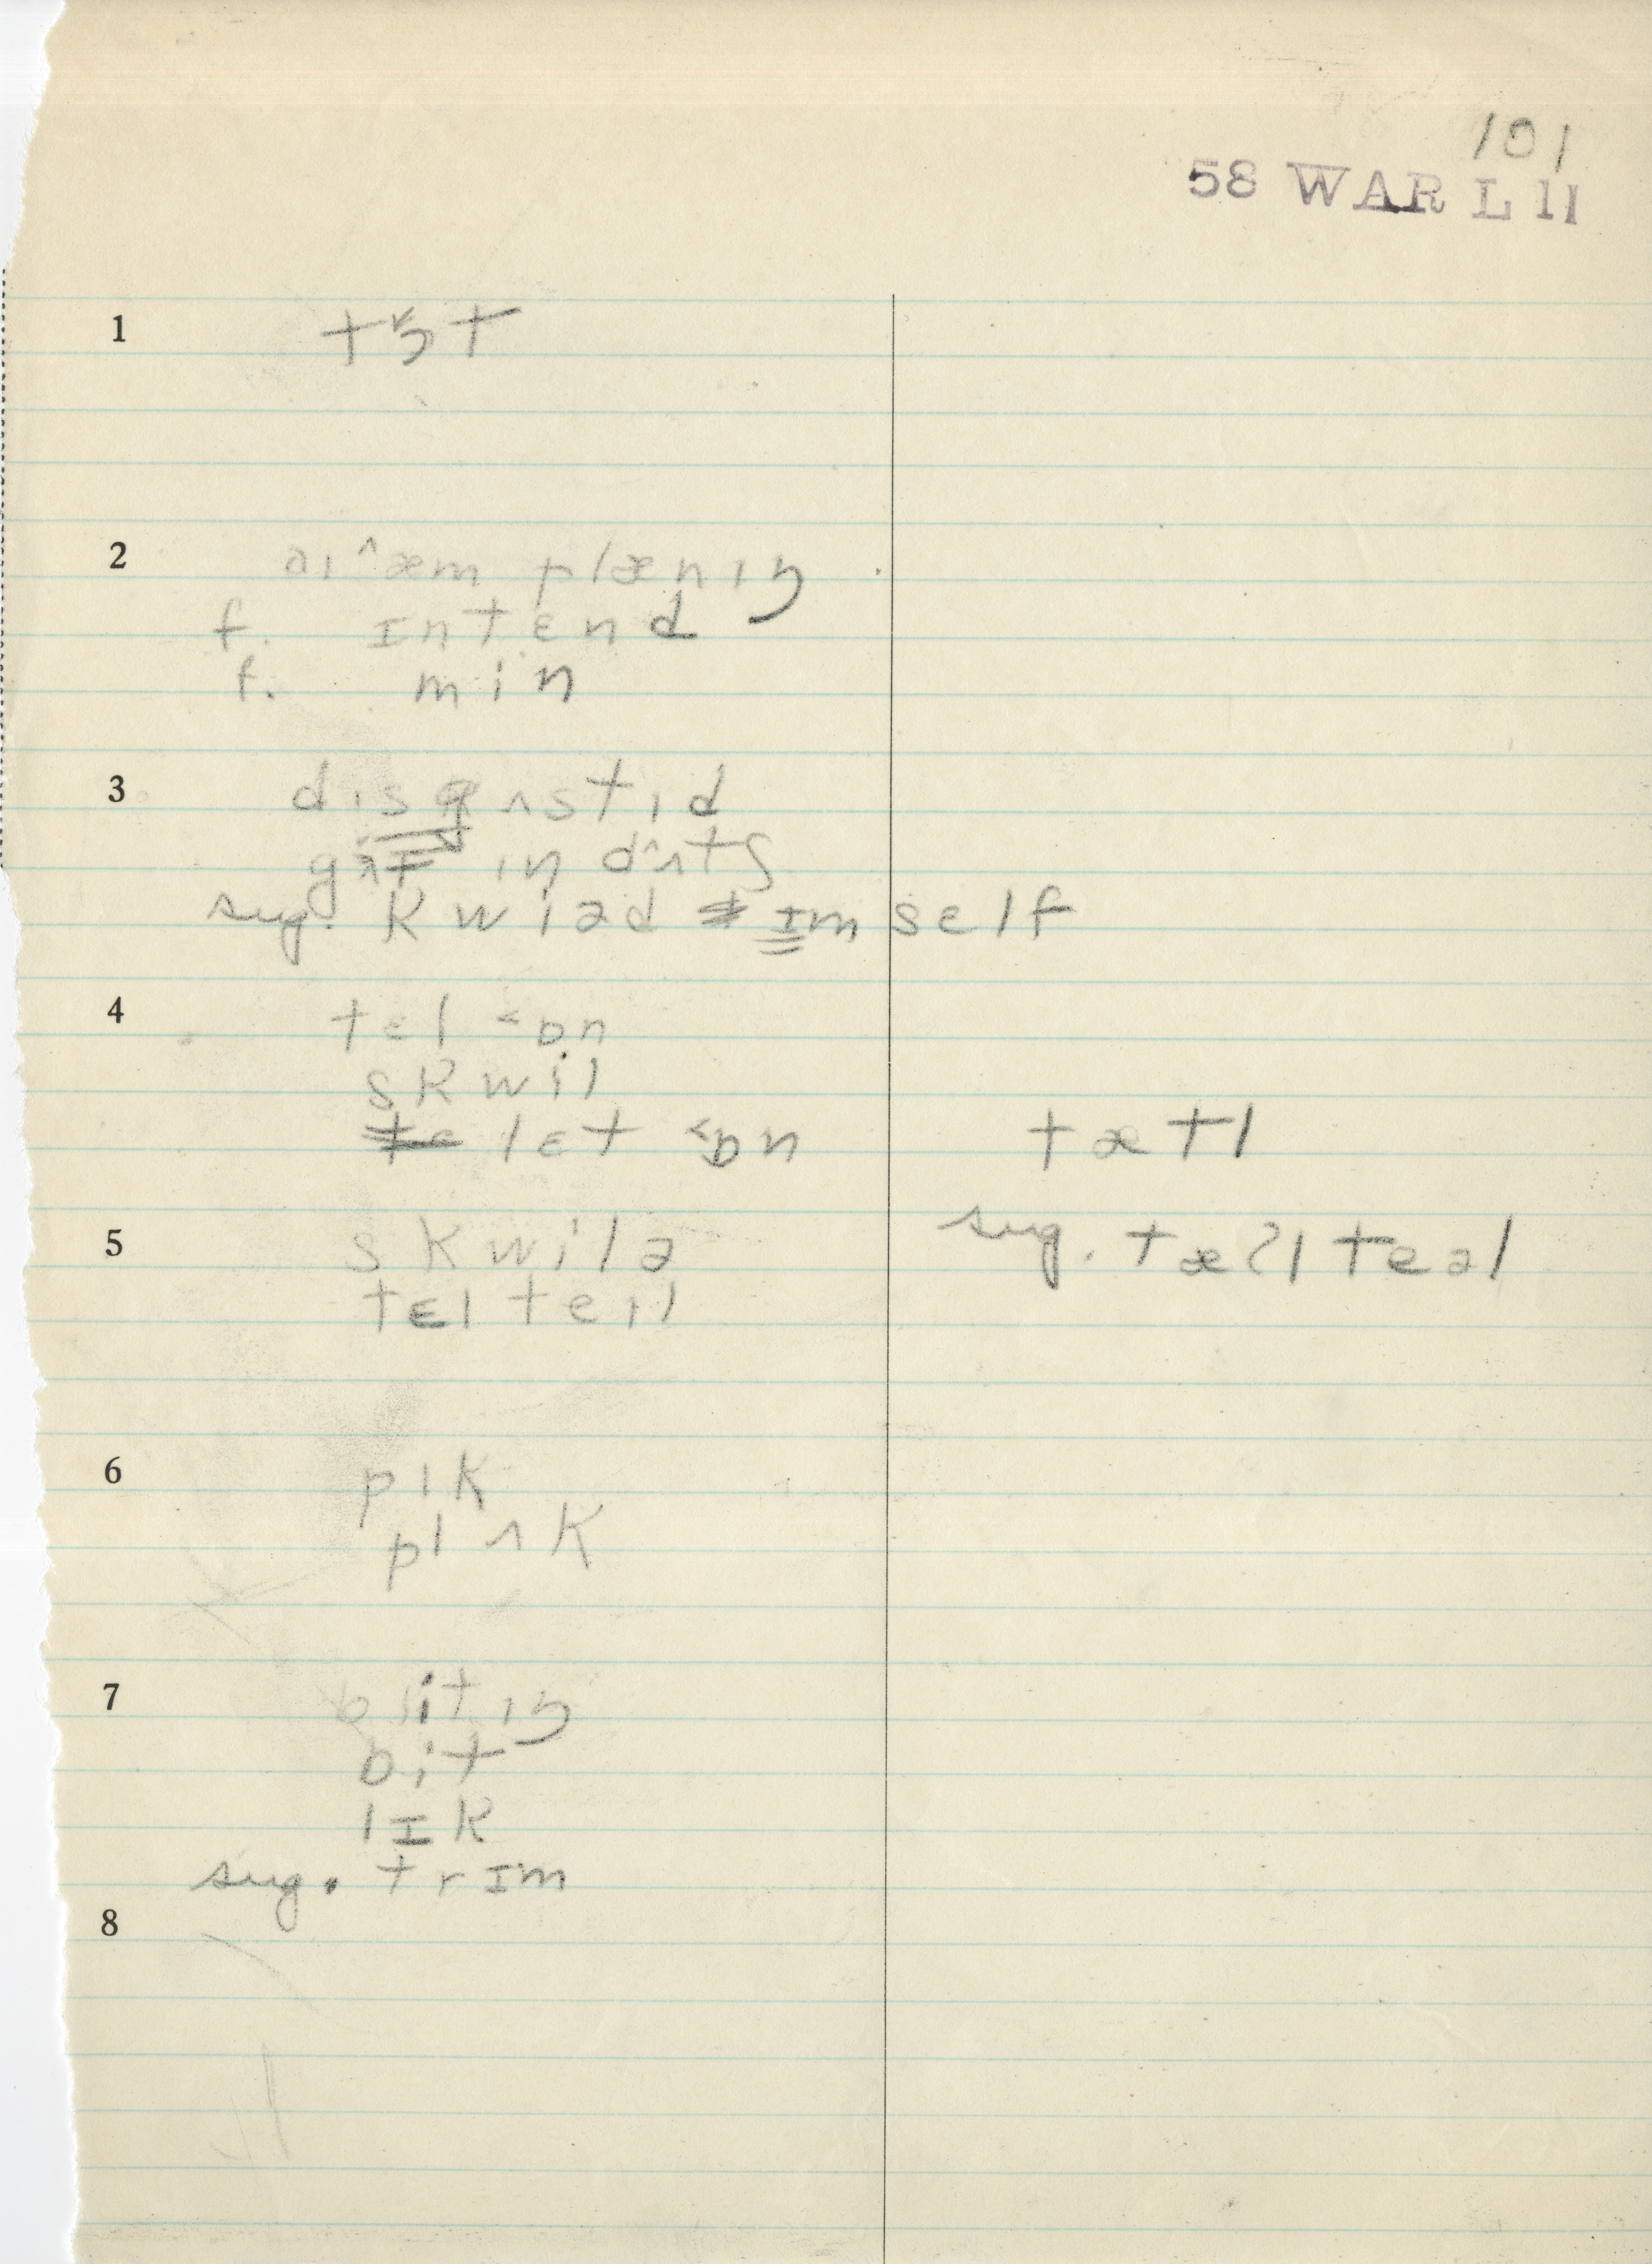 101
58 WAR L 11
1 tɔ˂t
2 aɪ ^æm plænɪŋ
f. ɪntɛnd
f. min
3 dɪsgʌstɪd
gɪt ɪn dʌtʃ
sug. kwiəd ɪmself
4 tɛl ˂ɒn
skwil
lɛt ˂ɒn tætl
5 skwilə sug. tæʔl teəl
tɛl teɪl
6 pɪk
plʌk
7 blitɪŋ
bit
lɪk
sug. trɪm
8